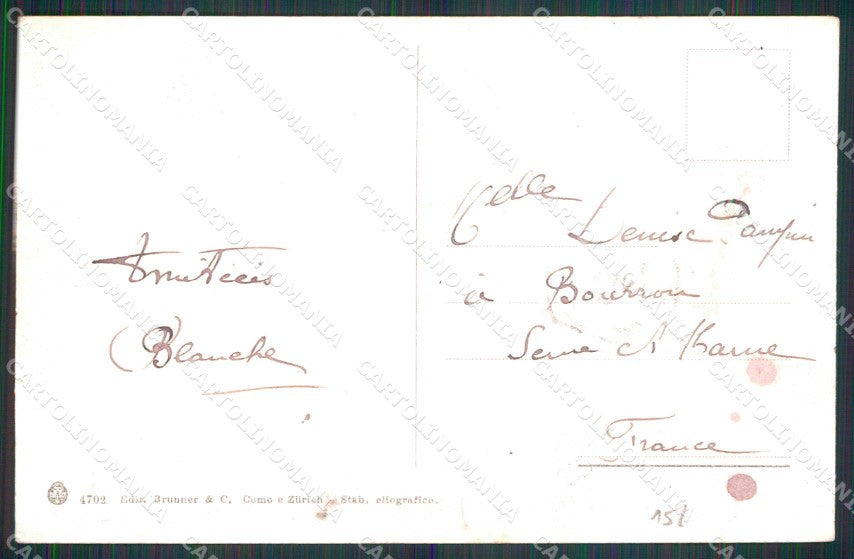 Amitiés
Blanche
Melle Denise
à Bourron
Seine et Marne
France
4702 Ediz. Brunner & C. Como e Zürich - Stab. eliografico.
15/
CARTOLINOMANIA